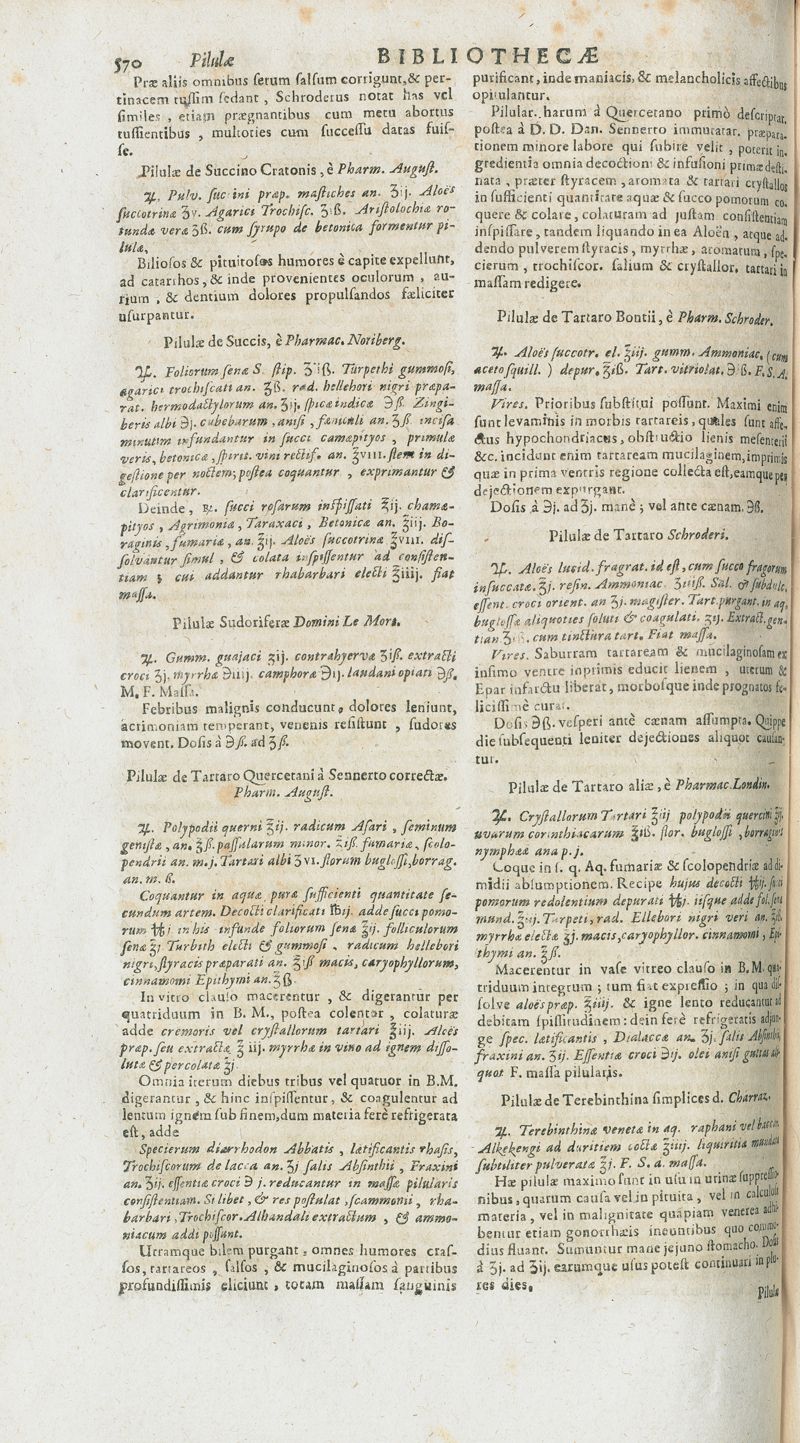 570 Pilulæ BIBLIOTHECÆ
Præ aliis omnibus ſerum ſalſum corrigunt, & per-
tinacem tuſſim ſedant , Schroderus notat has vel
ſimiles , etiam prægnantibus cum metu abortus
tuſſientibus , multoties cum ſucceſſu datas fuiſ-
ſe.
Pilulæ de Succino Cratonis , è Pharm. Auguſt.
♃. Pulv. ſuccini præp. maſtiches an. ʒij. Aloës
ſuccotrinæ ʒv. Agarici Trochiſc. ʒiß. Ariſtolochiæ ro-
tundæ veræ ʒß. cum ſyrupo de betonica formentur pi-
lulæ,
Bilioſos & pituitoſos humores è capite expellunt,
ad catarrhos, & inde provenientes oculorum , au-
rium , & dentium dolores propulſandos fæliciter
uſurpantur.
Pilulæ de Succis, è Pharmac. Noriberg.
♃. Foliorum ſenæ S. ſtip. ℥iß. Turpethi gummoſi,
agarici trochiſcati an. ℥ß. rad. hellebori nigri præpa-
rat. hermodactylorum an. ʒij. ſpicæ indicæ ℈ß. Zingi-
beris albi ℈j. cubebarum , aniſi , fæniculi an. ʒß inciſa
minutim infundantur in ſucci camæpityos , primulæ
veris, betonicæ , ſpirit. vini rectif. an. ℥viii. ſtem in di-
geſtione per noctem; poſtea coquantur , exprimantur &
clarificentur.
Deinde, ♃. ſucci roſarum inſpiſſati ℥ij. chamæ-
pityos , Agrimoniæ , Taraxaci , Betonicæ an. ℥iij. Bo-
raginis , fumariæ , an. ℥ij. Aloës ſuccotrinæ ℥viii. diſ-
ſolvantur ſimul , & colata inſpiſſentur ad conſiſten-
tiam ; cui addantur rhabarbari electi ℥iiij. fiat
maſſa.
Pilulæ Sudoriferæ Domini Le Mort.
♃. Gumm. guajaci ʒij. contrahyervæ ʒiß. extracti
croci ʒj. myrrhæ ℈iiij. camphoræ ℈ij. laudani opiati ℈ß.
M. F. Maſſa.
Febribus malignis conducunt, dolores leniunt,
acrimoniam temperant, venenis reſiſtunt , ſudores
movent. Doſis à ℈ß. ad ʒß.
Pilulæ de Tartaro Quercetani à Sennerto correctæ.
Pharm. Auguſt.
♃. Polypodii querni ℥ij. radicum Aſari , ſeminum
geniſtæ , an. ℥ß. paſſularum minor. ℥iß. fumariæ, ſcolo-
pendrii an. m. j. Tartari albi ʒvi. florum bugloſſi, borrag.
an. m. ß.
Coquantur in aquæ puræ ſufficienti quantitate ſe-
cundum artem. Decocti clarificati ℔ij. adde ſucci pomo-
rum ℔j in his infunde foliorum ſenæ ℥ij. folliculorum
ſenæ ℥j Turbith electi & gummoſi , radicum hellebori
nigri, ſtyracis præparati an. ℥iß macis, caryophyllorum,
cinnamomi Epithymi an. ℥ß.
In vitro clauſo macerentur , & digerantur per
quatriduum in B. M., poſtea colentur , colaturæ
adde cremoris vel cryſtallorum tartari ℥iij. Aloës
præp. ſeu extractæ ℥iij. myrrhæ in vino ad ignem diſſo-
lutæ & percolatæ ℥j
Omnia iterum diebus tribus vel quatuor in B.M.
digerantur , & hinc inſpiſſentur, & coagulentur ad
lentum ignem ſub finem, dum materia ferè refrigerata
eſt, adde
Specierum diarrhodon Abbatis , lætificantis rhaſis,
Trochiſcorum de lacca an. ʒj ſalis Abſinthii , Fraxini
an. ʒij. eſſentiæ croci ℈j. reducantur in maſſæ pilularis
conſiſtentiam. Si libet , & res poſtulat , ſcammonii , rha-
barbari , Trochiſcor. Alhandali extractum , & ammo-
niacum addi poſſunt.
Utramque bilem purgant , omnes humores craſ-
ſos, tartareos , ſalſos , & mucilaginoſos à partibus
profundiſſimis eliciunt , totam maſſam ſanguinis
purificant, inde maniacis, & melancholicis affectibus
opitulantur.
Pilular. harum à Quercetano primò deſcriptar.
poſtea à D. D. Dan. Sennerto immutatar. præpara-
tionem minore labore qui ſubire velit , poterit in-
gredientia omnia decoctioni & infuſioni primæ deſti-
nata , præter ſtyracem , aromata & tartari cryſtallos
in ſufficienti quantitate aquæ & ſucco pomorum co-
quere & colare, colaturam ad juſtam conſiſtentiam
inſpiſſare, tandem liquando in ea Aloën , atque ad-
dendo pulverem ſtyracis , myrrhæ , aromatum , ſpe-
cierum , trochiſcor. ſalium & cryſtallor. tartari in
maſſam redigere.
Pilulæ de Tartaro Bontii, è Pharm. Schroder.
♃. Aloës ſuccotr. el. ℥iij. gumm. Ammoniac. (cum
aceto ſquill. ) depur. ʒiß. Tart. vitriolat. ℈ß. F. S. A.
maſſa.
Vires. Prioribus ſubſtitui poſſunt. Maximi enim
ſunt levaminis in morbis tartareis, quales ſunt affe-
ctus hypochondriacus , obſtructio lienis meſenterii
&c. incidunt enim tartaream mucilaginem, imprimis
quæ in prima ventris regione collecta eſt, eamque per
dejectionem expurgant.
Doſis à ℈j. ad ʒj. manè ; vel ante cænam. ℈ß.
Pilulæ de Tartaro Schroderi.
♃. Aloës lucid. fragrat. id eſt, cum ſucco fragorum
inſuccatæ. ℥j. reſin. Ammoniac. ʒiiiß. Sal. ☿ ſubdulc.
eſſent. croci orient. an ʒj. magiſter. Tart. purgant. in aq.
bugloſſæ aliquoties ſoluti & coagulati. ʒij. Extract. gen-
tian. ʒiß. cum tinctura tart. Fiat maſſa.
Vires. Saburram tartaream & mucilaginoſam ex
infimo ventre inprimis educit lienem , uterum &
Epar infarctu liberat, morboſque inde prognatos fe-
liciſſimè curat.
Doſis ℈ß. veſperi antè cænam aſſumpta. Quippe
die ſubſequenti leniter dejectiones aliquot cauſan-
tur.
Pilulæ de Tartaro aliæ , è Pharmac. Londin.
♃. Cryſtallorum Tartari ℥iij polypodii quercini ℥j.
uvarum corinthiacarum ℥iß. flor. bugloſſi , borraginis
nymphææ ana p. j.
Coque in ſ. q. Aq. fumariæ & ſcolopendriæ ad di-
midii abſumptionem. Recipe hujus decocti ℔ij. ſucci
pomorum redolentium depurati ℔j. iiſque adde fol. ſenæ
mund. ℥iij. Turpeti, rad. Ellebori nigri veri an. ℥iß.
myrrhæ electæ ℥j. macis, caryophyllor. cinnamomi , Epi-
thymi an. ℥ß.
Macerentur in vaſe vitreo clauſo in B. M. qua-
triduum integrum ; tum fiat expreſſio ; in qua diſ-
ſolve aloës præp. ℥iiij. & igne lento reducantur ad
debitam ſpiſſitudinem : dein ferè refrigeratis adjun-
ge ſpec. lætificantis , Dialacca an. ʒj. ſalis Abſinthii,
fraxini an. ʒij. Eſſentiæ croci ℈ij. olei aniſi guttas ali-
quot F. maſſa pilularis.
Pilulæ de Terebinthina ſimplices d. Charraz.
♃. Terebinthinæ venetæ in aq. raphani vel baccar.
Alkekengi ad duritiem coctæ ℥iiij. liquiritiæ mundatæ
ſubtiliter pulveratæ ℥j. F. S. a. maſſa.
Hæ pilulæ maximo ſunt in uſu in urinæ ſuppreſſio-
nibus, quarum cauſa vel in pituita , vel in calculoſa
materia , vel in malignitate quapiam venerea adhi-
bentur etiam gonorrhæis ineuntibus quo commo-
dius fluant. Sumuntur mane jejuno ſtomacho. Doſis
à ʒj. ad ʒij. earumque uſus poteſt continuari in plu-
res dies.
Pilulæ